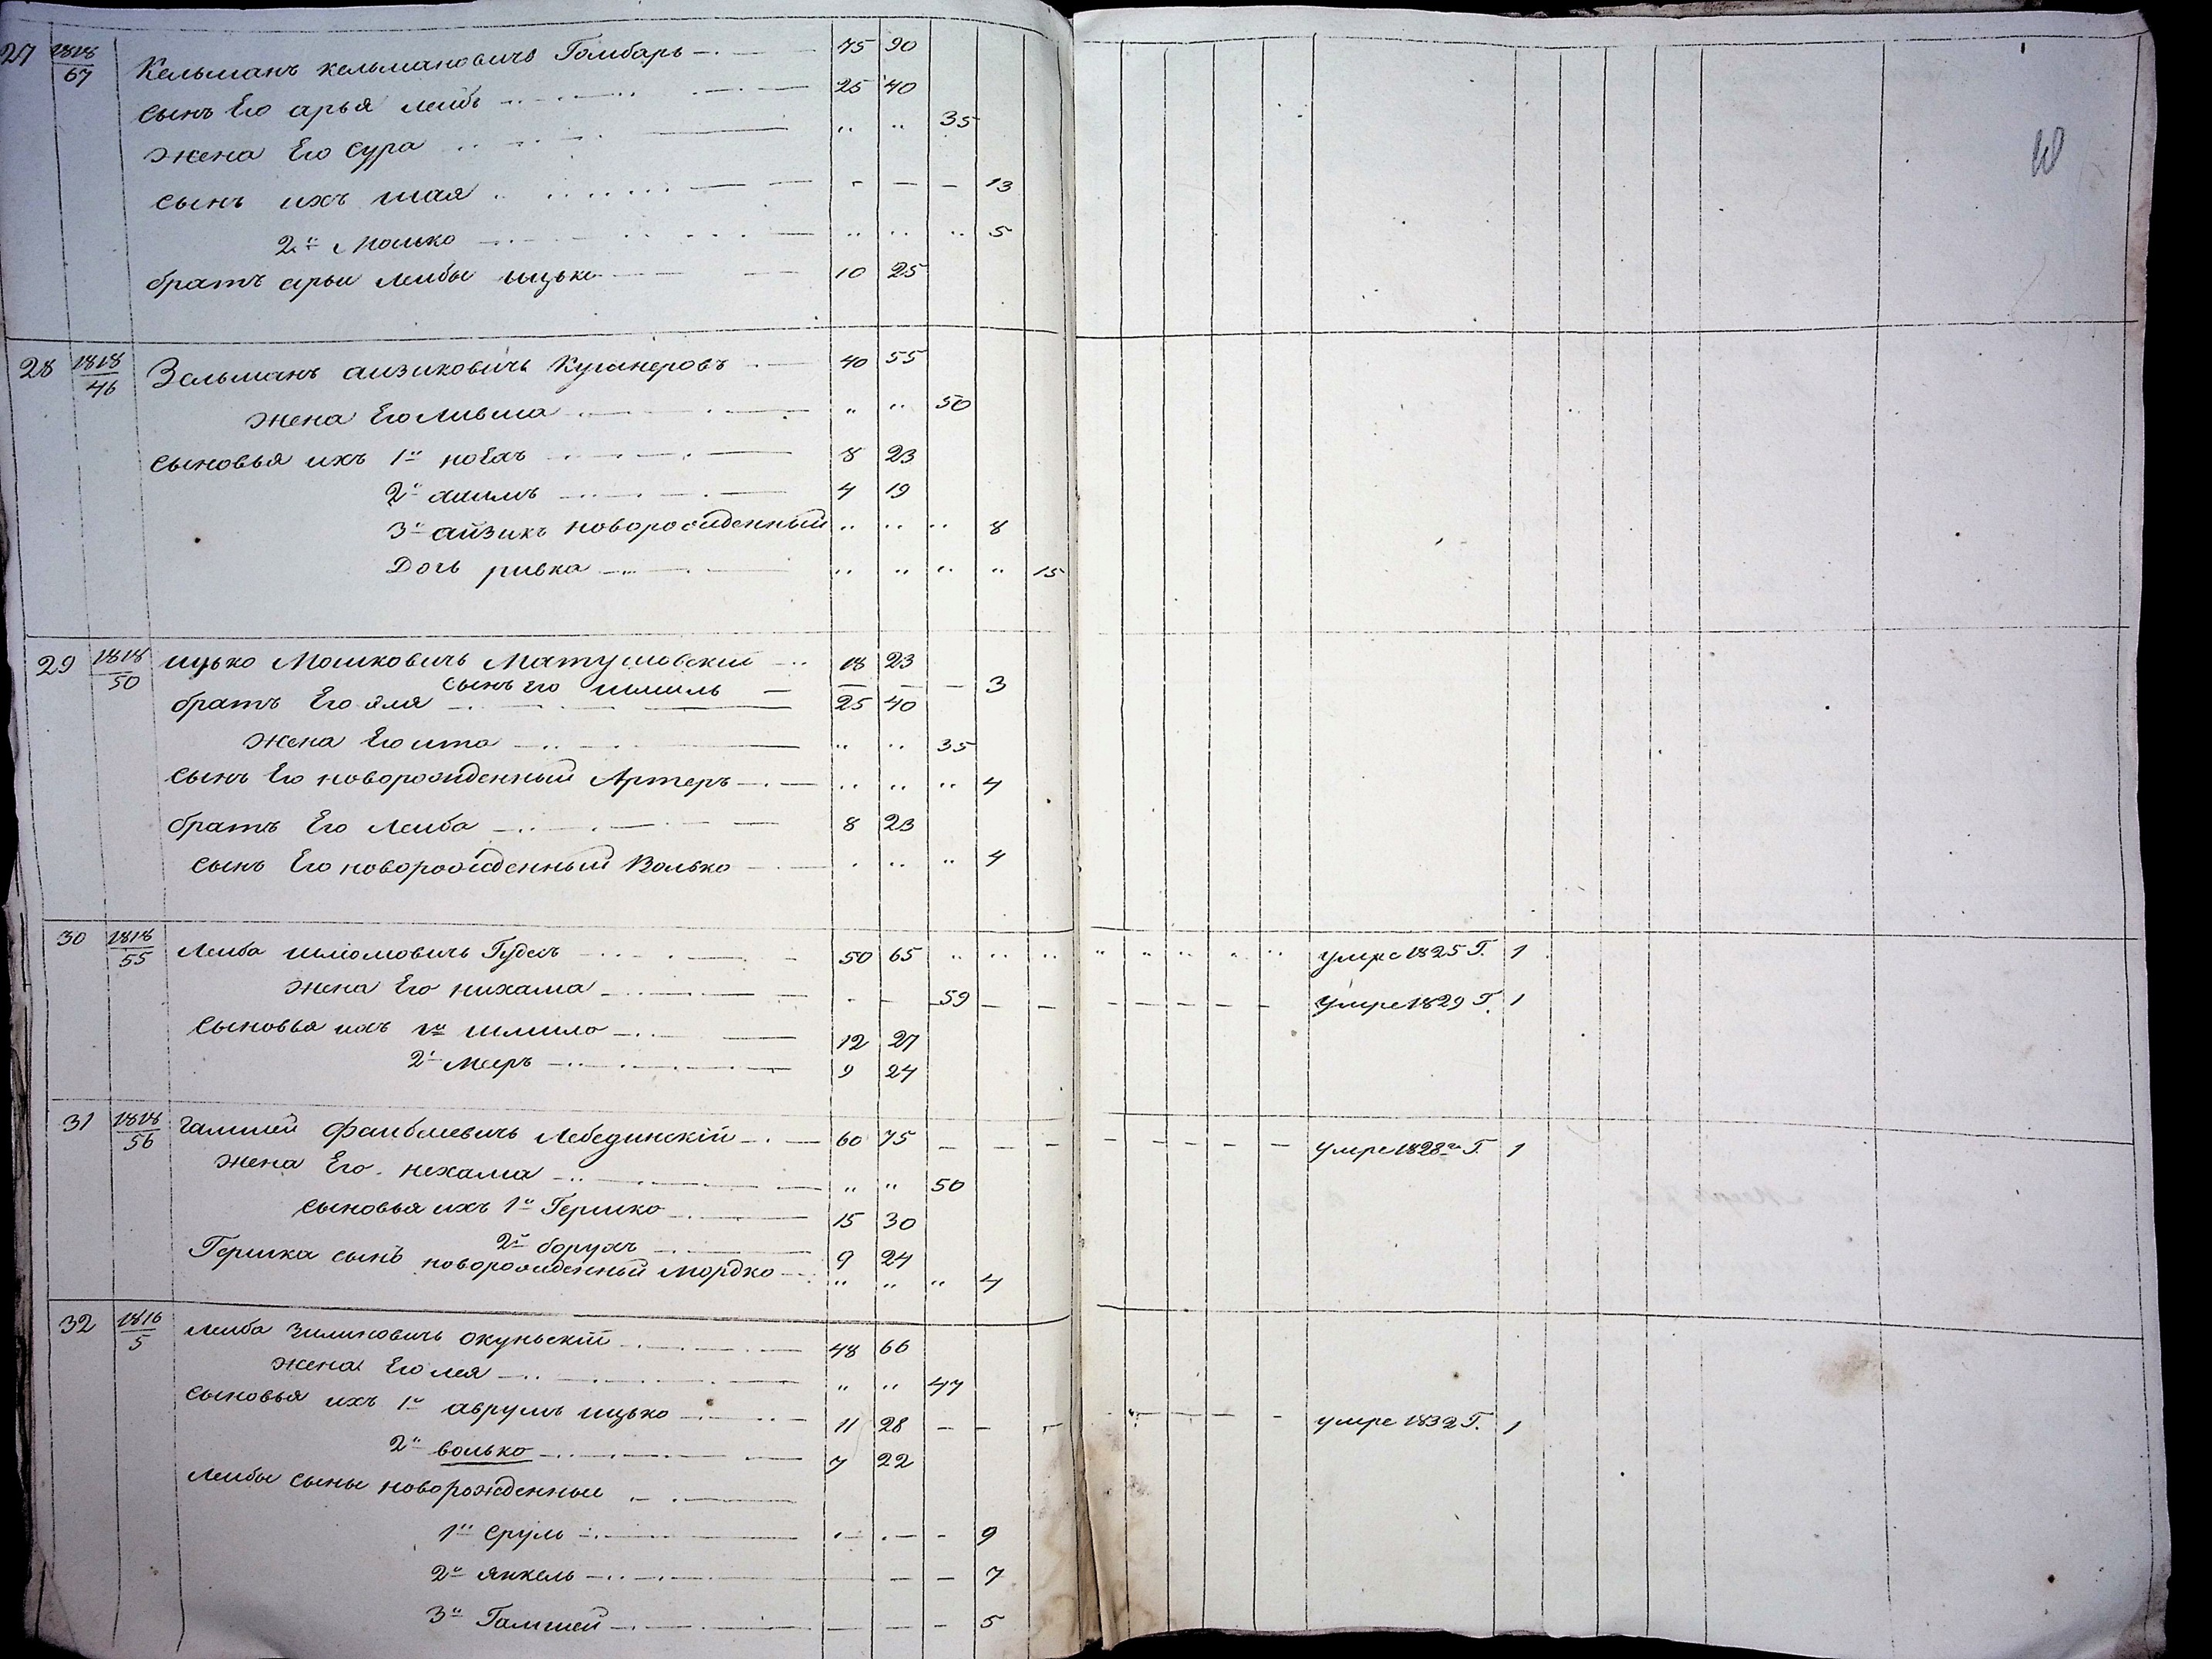 27 1818/67 Кельманъ кельмановичъ Гамбарь 75 90
сынъ Его арья леибъ 25 40
жена Его сура 35
сынъ ихъ шая 13
2й Малько 5
братъ арьи леибы ицько 10 25
28 1818/46 Зельманъ аизиковичь Кушнеровъ 40 55
жена Его ливша 50
сыновья ихъ 1й ноехъ 8 23
2й 4 19
3й айзикъ новорожденный 8
Дочь ривка 15
29 1818/50 ицько Мошковичь Матушовскій 18 23
сынъ его шмиль 3
братъ Его эля 25 40
жена Его ита 35
сынъ Его новорожденный Артеръ 4
братъ Его Леиба 8 23
сынъ Его новорожденный Волько 4
30 1818/55 Леиба шлiомовичь 50 65 умре 1825 Г. 1
жена Его нихама 59 умре 1829 Г. 1
сыновья ихъ 1й шмило 12 27
2й Меeръ 9 24
31 1818/56 Гамшей Фаиблиевичь Лебединскій 60 75 умре 1828го Г. 1
жена Его нехама 50
сыновья ихъ 1й Гершко 15 30
2й борухъ 9 24
Гершка сынъ новорожденный мордко 4
32 1816/5 леиба зиликовичь окуньскій 48 66
жена Его лея 47
сыновья ихъ 1й аврумъ ицько 11 28 умре 1832 Г. 1
2й волько 7 22
Леибы сыны новорожденные
1й сруль 9
2й янкель 7
3й Гамшей 5
10